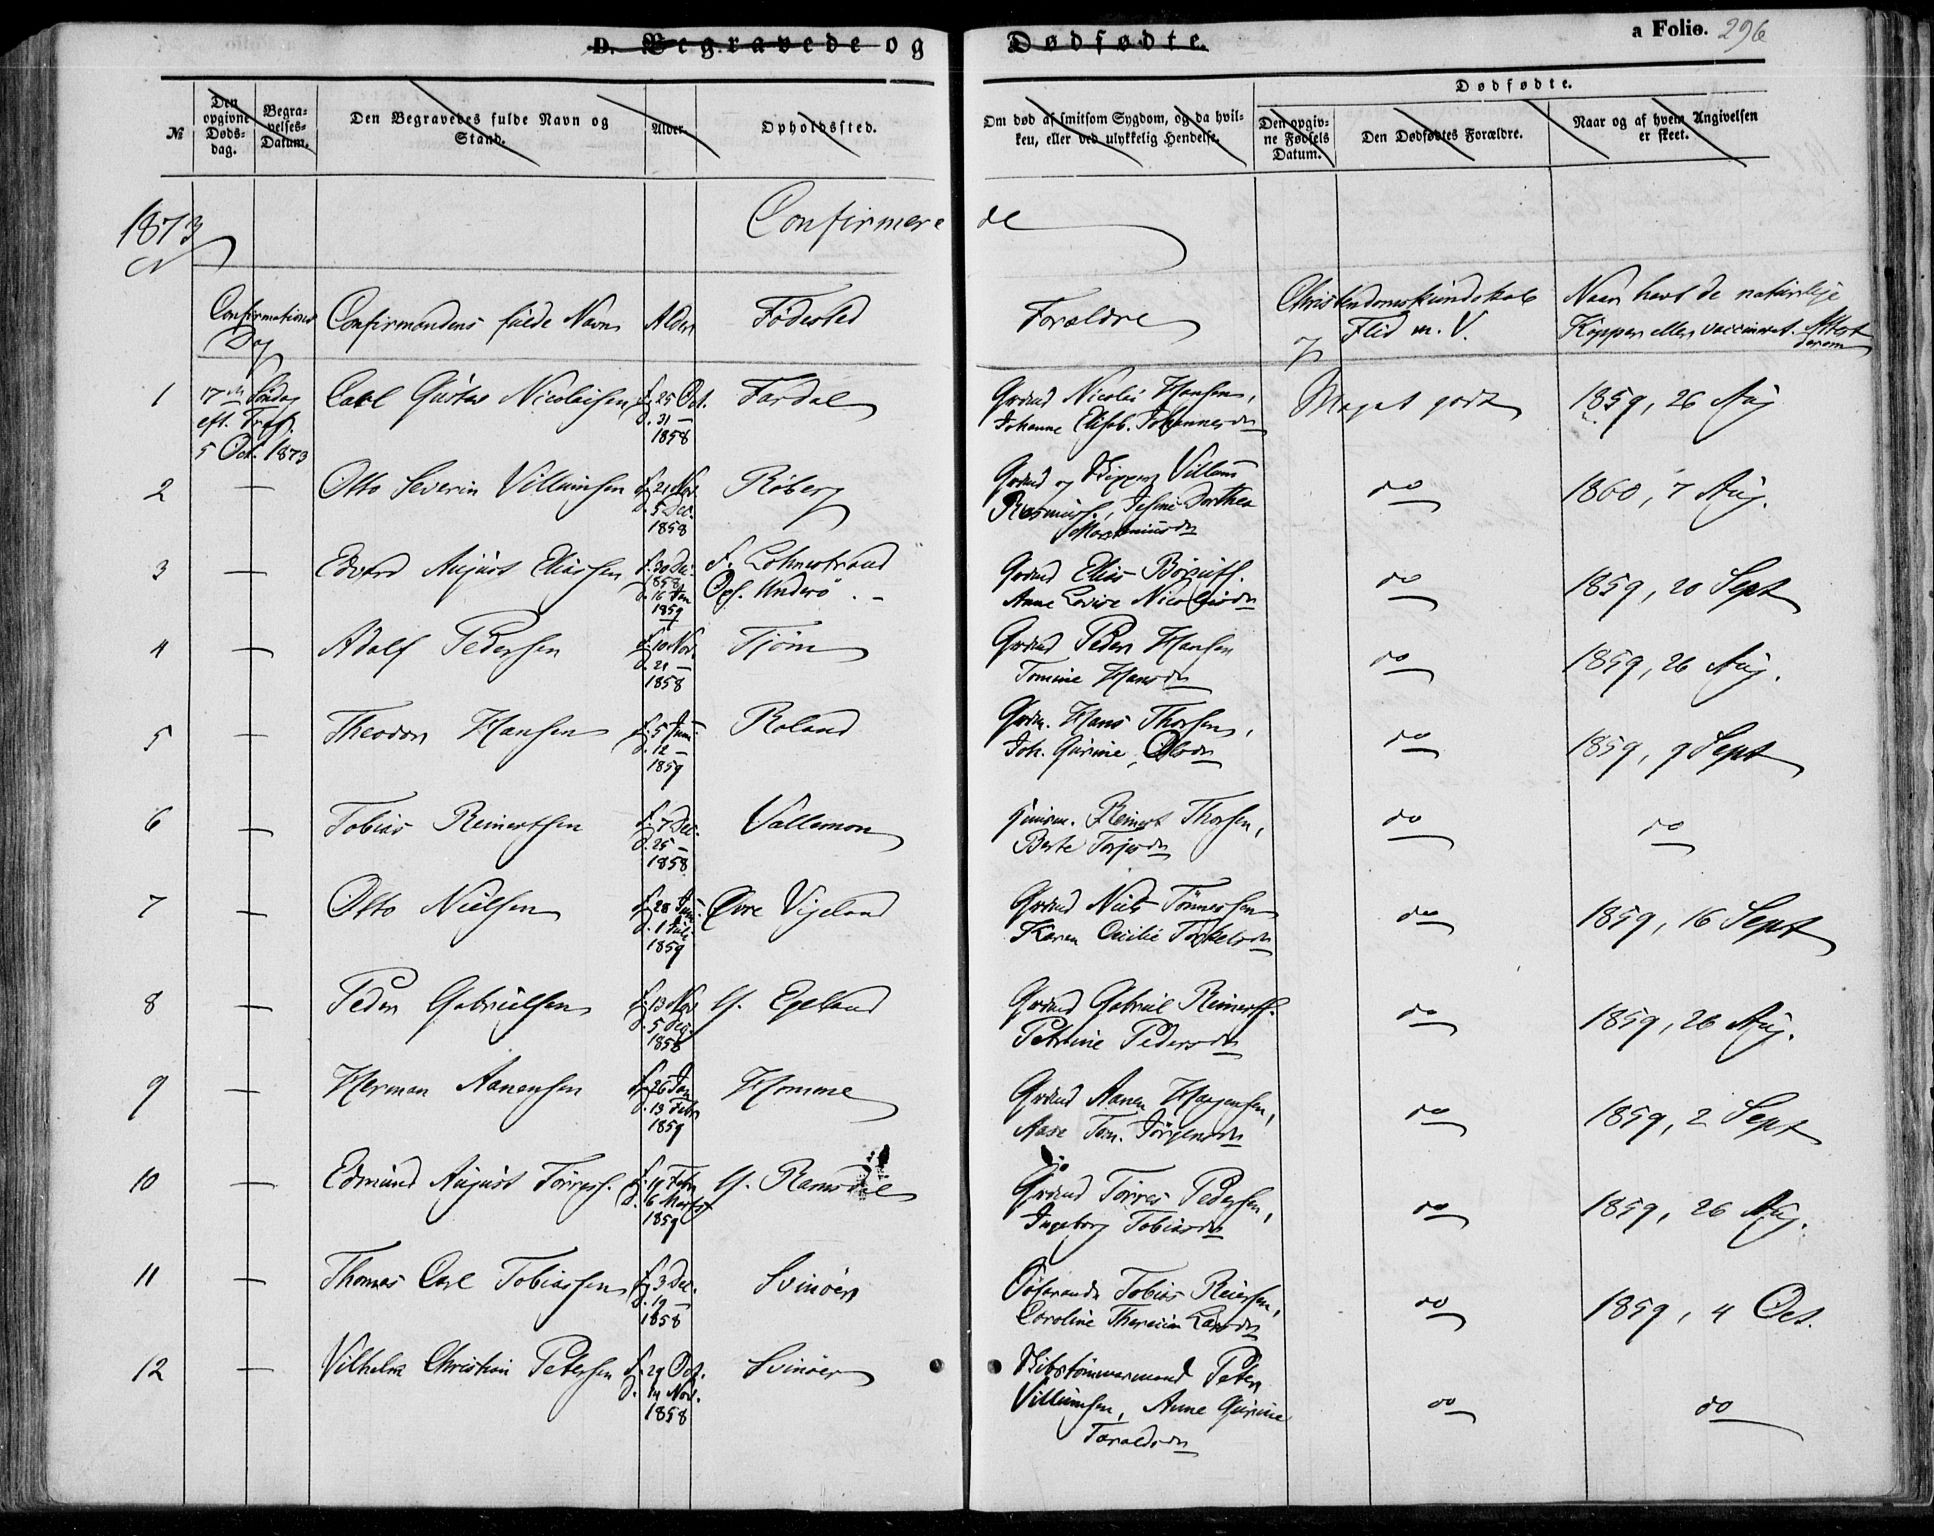 D. Begravede og Dødfødte.
a Folio. 296
Dødfødte.
№
Den opgivne Døds-dag.
Begra-velses-Datum.
Den Begravedes fulde Navn og Stand.
Alder.
Opholdssted.
Om død af smitsom Sygdom, og da hvil-ken, eller ved ulykkelig Hendelse.
Den opgiv-ne Fødsels Datum.
Den Dødfødtes Forældre.
Naar og af hvem Angivelsen er skeet.
1873 Confirmerede
Confirmations Dag
Confirmandens fulde Navn
Alder
Fødested
Forældre
Christendomskundskab Flid m. V.
Naar havt de naturlige Kopper eller vaccineret. Attest derom
1 17de Søndag eft. Tref. 5 Oct. 1873 Carl Gustav Nicolaisen f. 25 Oct. d. 31 – 1858 Fardal Grdmd Nicolai Hansen, Johanne Elisab. Johannesdr Meget godt 1859, 26 Aug
2 — Otto Severin Villumsen f. 21 Nov. d. 5 Dec. 1858 Røberg Grdmd og Skipper Villum Rasmuss., Dorthea do 1860, 7 Aug.
3 — Edvard August Eliassen f. 30 Dec. 1858 d. 16 Jan 1859 F. Lohnestrand Oph. Underø Grdmd Elias Anne Lovise Nicolaisdr do 1859, 20 Sept
4 — Adolf Pedersen f. 10 Nov. d. 21 – 1858 Tjøm Grdmd Peder Hansen Tomine Hansdr do 1859, 26 Aug.
5 — Theodor Hansen f. 5 Juni d. 12 – 1859 Roland Grdm. Hans Thorsen, Joh. Gurine Olsdr do 1859, 9 Sept
6 — Tobias Reinertsen f. 7 Dec. d. 25 – 1858 Vallemon Reinert Thorsen, Berte Torjesdr do do
7 — Otto Nielsen f. 28 Juni d. 1 Juli 1859 Øvre Vigeland Grdmd Niels Tønnessen Karen Cecilie Torkelsdr do 1859, 16 Sept
8 — Peder Gabrielsen f. 13 Nov d. 5 Dec. 1858 Y. Egeland Grdmd Gabriel Reinerts. Petrine Pedersdr do 1859, 26 Aug.
9 — Herman Aanensen f. 26 Jan d. 13 Febr 1859 Homme Grdmd Aanen Aase Tom. Jørgensdr do 1859, 2 Sept
10 — Edmund August Tørress. f. 14 Febr d. 6 Marts 1859 Y. Ramsdal Grdmd Tørres Pedersen, Ingeborg Tobiasdr do 1859, 26 Aug.
11 — Thomas Carl Tobiassen f. 3 Dec. d. 19 – 1858 Svinøer Søfarende Tobias Reiersen, Caroline Larsdr do 1859, 4 Oct.
12 — Vilhelm Christian Petersen f. 29 Oct. d. 14 Nov. 1858 Svinøer Skibstømmermand Peter Villumsen, Anne Gurine Taraldsdr do do